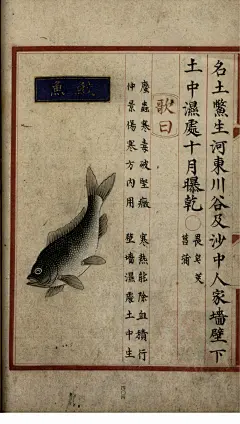 名土鱉生河東川谷及沙中人家墻壁下
土中濕處十月曝乾○畏皂莢
菖蒲
歌曰
䗪蟲寒毒破堅癥 寒熱能除血積行
仲景傷寒方內用 壁墻濕處土中生
魚